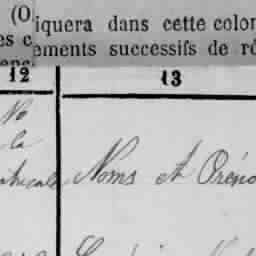 (O
iquera dans cette colon
es c
ements successifs de ré
12
13
No
la
Noms et Préno